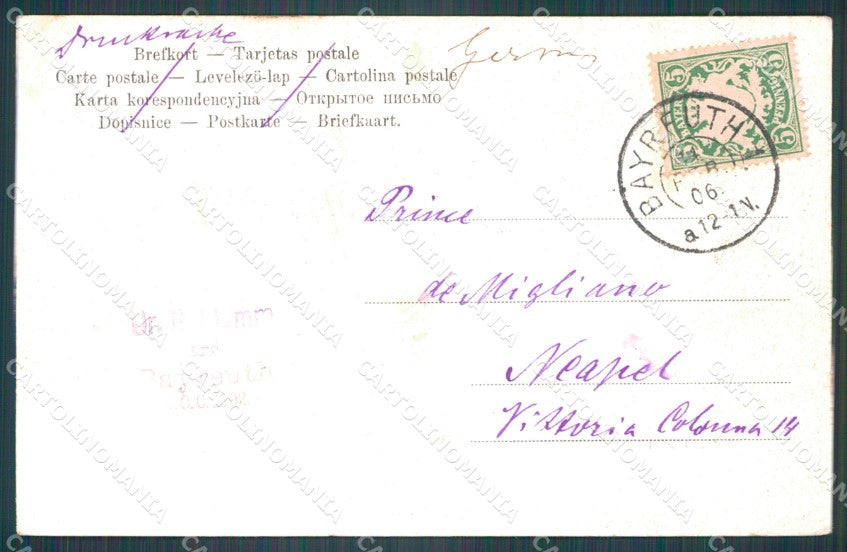 Drucksache
Brefkort — Tarjetas postale
Carte postale — Levelező-lap — Cartolina postale
Karta korespondencyjna — Открытое письмо
Dopisnice — Postkarte — Briefkaart.
5 5
BAYERN
5 5
BAYREUTH
06
a 12-1 V.
Prince
de Migliano
Neapel
Vittoria Colonna 14
Dr.
Bayreuth
CARTOLINOMANIA